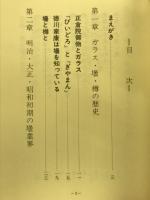 ＝目次＝
まえがき
第一章 ガラス・壜・樽の歴史
正倉院御物とガラス
「びいどろ」と「ぎやまん」
徳川家康は壜を知っている
壜と樽と
第二章 明治・大正・昭和初期の壜業界